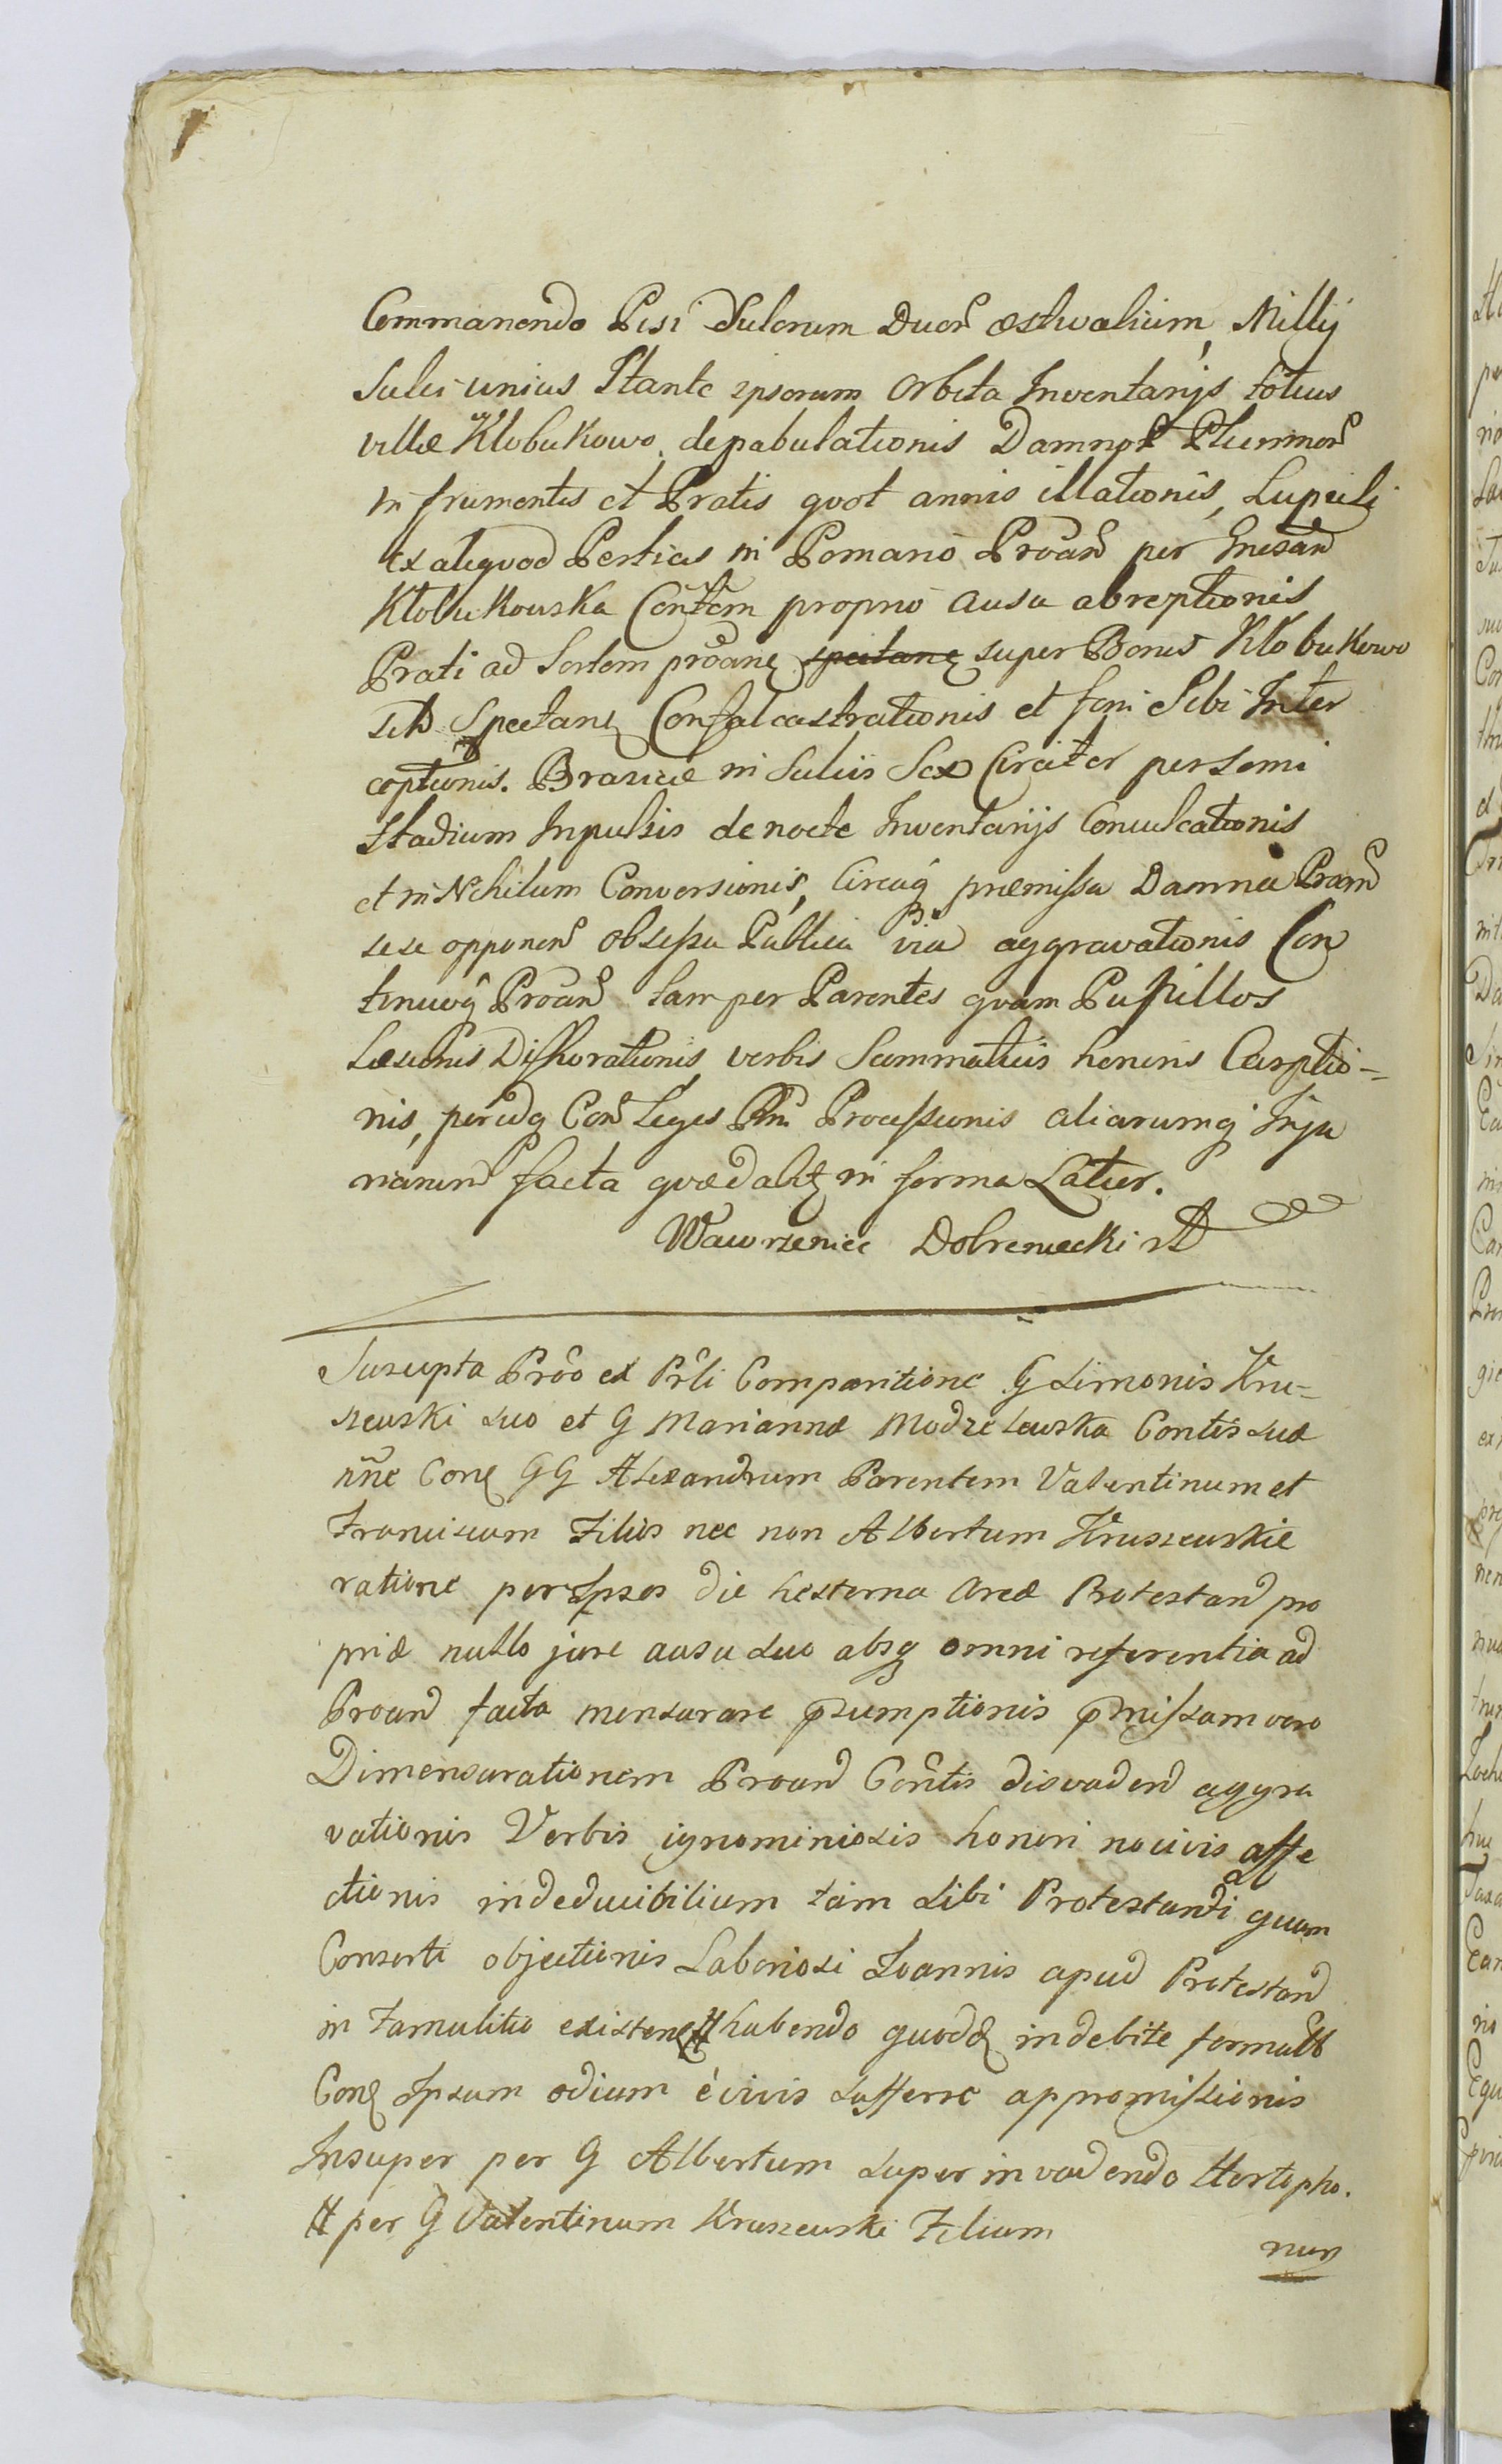 Commanendo Pisi Sulcorum Duor æstivalium, Milly
Sulci unius Stante ipsorum orbita Inventarijs totius
villæ Klobukowo, depabulationis Damnor Plurimor
in frumentis et Pratis qvot annis illationis, Lupuli
ex aliqvod Perticis in Pomario Proãn per Gnesam
Klobukowska Conttem proprio ausu abreptionis
Prati ad Sortem prõanę spectanę super Bonis Klobukowo
sitis Spectanę Confalcastrationis et foni Sibi Inter
ceptionis. Brasicæ in Sulcis Sex Circiter per semi
Stadium Inpulsis de nocte Inventarijs Conculcationis
et in Nihilum Conversionis, Circaq præmissa Damna Proãn
sese opponen obsessa Publica via aggravationis Con
tinuoq Proãn tam per Parentes qvam Pupillos
Læsionis Dishorationis verbis Scommaticis honoris Carptio=
nis, perindq Con Leges Pñti Processionis aliarumq Inju
riarum facta qvædabitę in forma Latior.
Wawrzeniec Dobreniecki
Suscepta Prõo ex Prli Comparitione G Simonis Kru=
szewski suo et G Mariannæ Modzelewska Contis suæ
nñe Conę GG Alexandrum Parentem Valentinum et
Franciscum Filios nec non Albertum Kruszewskie
ratione per Ipsos die hesterna Areæ Protestan pro
priæ nullo jure ausu suo absq omni referentia ad
Proan facta mensurare psumptionis pmissam vero
Dimensurationem Proan Contis disvaden aggra
vationis Verbis ignominiosis honori nocivis affe
ctionis indeducibilium tam sibi Protestanti quam
Consorti objectionis Laboriosi Joannis apud Protestan
in Famulitio existenę # habendo quoddę indebite formatt
Conę Ipsum odium è vivis sufferre appromissionis
Insuper per G Albertum super invadendo Hortopho.
# per G Valentinum Kruszewski Filium
num